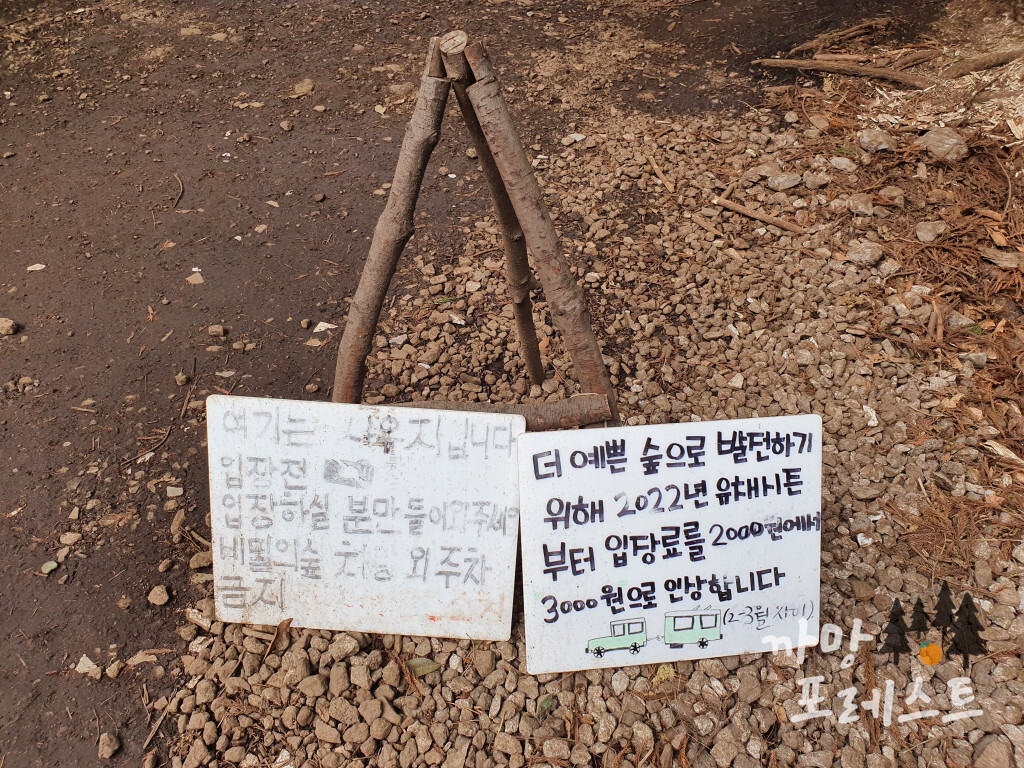 여기는 사유지입니다
입장전
입장하실 분만 들어와주세요
비밀의숲 차량 외 주차
금지
더 예쁜 숲으로 발전하기
위해 2022년 유채시즌
부터 입장료를 2000원에서
3000원으로 인상합니다
(2-3월 사이)
까망
포레스트